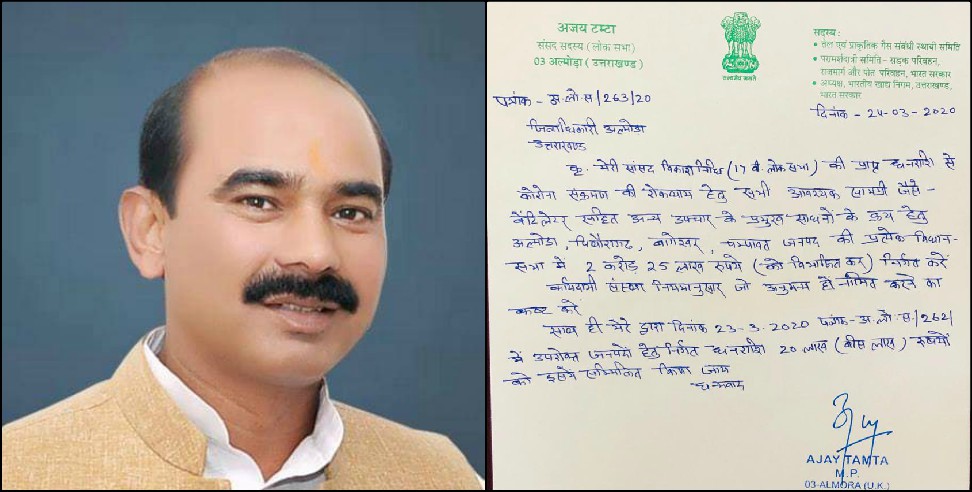 अजय टम्टा
संसद सदस्य (लोक सभा)
03 अल्मोड़ा (उत्तराखण्ड)
सत्यमेव जयते
सदस्य :
• तेल एवं प्राकृतिक गैस संबंधी स्थायी समिति
• परामर्शदात्री समिति - सड़क परिवहन,
राजमार्ग और पोत परिवहन, भारत सरकार
• अध्यक्ष, भारतीय खाद्य निगम, उत्तराखण्ड,
भारत सरकार
पत्रांक - अ.लो.स/263/20
दिनांक - 24-03-2020
जिलाधिकारी अल्मोडा
उत्तराखण्ड
कृ. मेरी सांसद विकास निधि (17 वी. लोक सभा) की प्राप्त धनराशी से
कोरोना संक्रमण की रोकथाम हेतु सभी आवश्यक सामग्री जैसे -
वेंटिलेटर सहित अन्य उपचार के प्रमुख साधनों के क्रय हेतु
अल्मोडा, पिथौरागढ, बागेश्वर, चम्पावत जनपद की प्रत्येक विधान-
सभा में 2 करोड़ 25 लाख रुपये (को विभाजित कर) निर्गत करें
कार्यदायी संस्था नियमानुसार जो अनुमन्य हों नामित करने का
कष्ट करें
साथ ही मेरे द्वारा दिनांक 23-3.2020 पत्रांक-अ.लो.स./262/
में उपरोक्त जनपदों हेतु निर्गत धनराशी 20 लाख (बीस लाख) रुपयों
को इसमें सम्मिलित किया जाय
धन्यवाद
AJAY TAMTA
M.P.
03-ALMORA (U.K.)